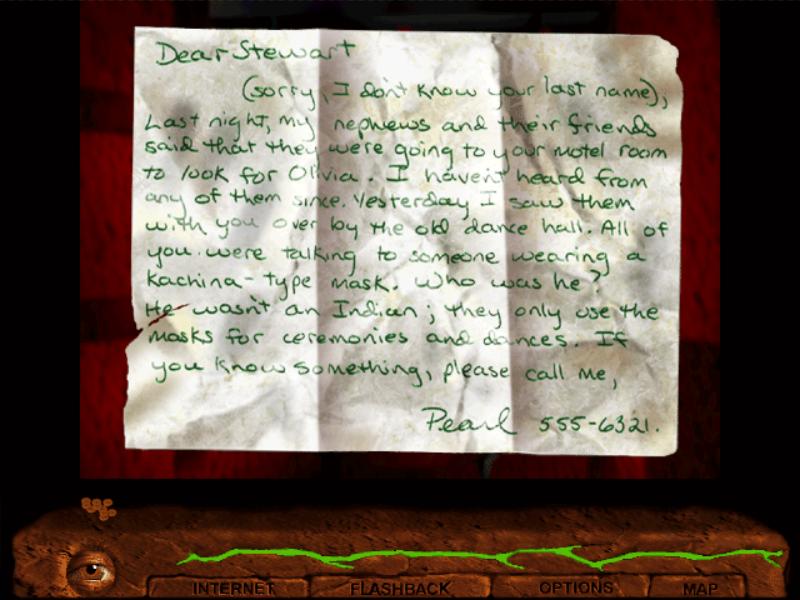 Dear Stewart
(sorry, I don't know your last name),
Last night, my nephews and their friends
said that they were going to your motel room
to look for Olivia. I haven't heard from
any of them since. Yesterday I saw them
with you over by the old dance hall. All of
you were talking to someone wearing a
Kachina-type mask. Who was he?
He wasn't an Indian; they only use the
masks for ceremonies and dances. If
you know something, please call me,
Pearl 555-6321.
INTERNET FLASHBACK OPTIONS MAP